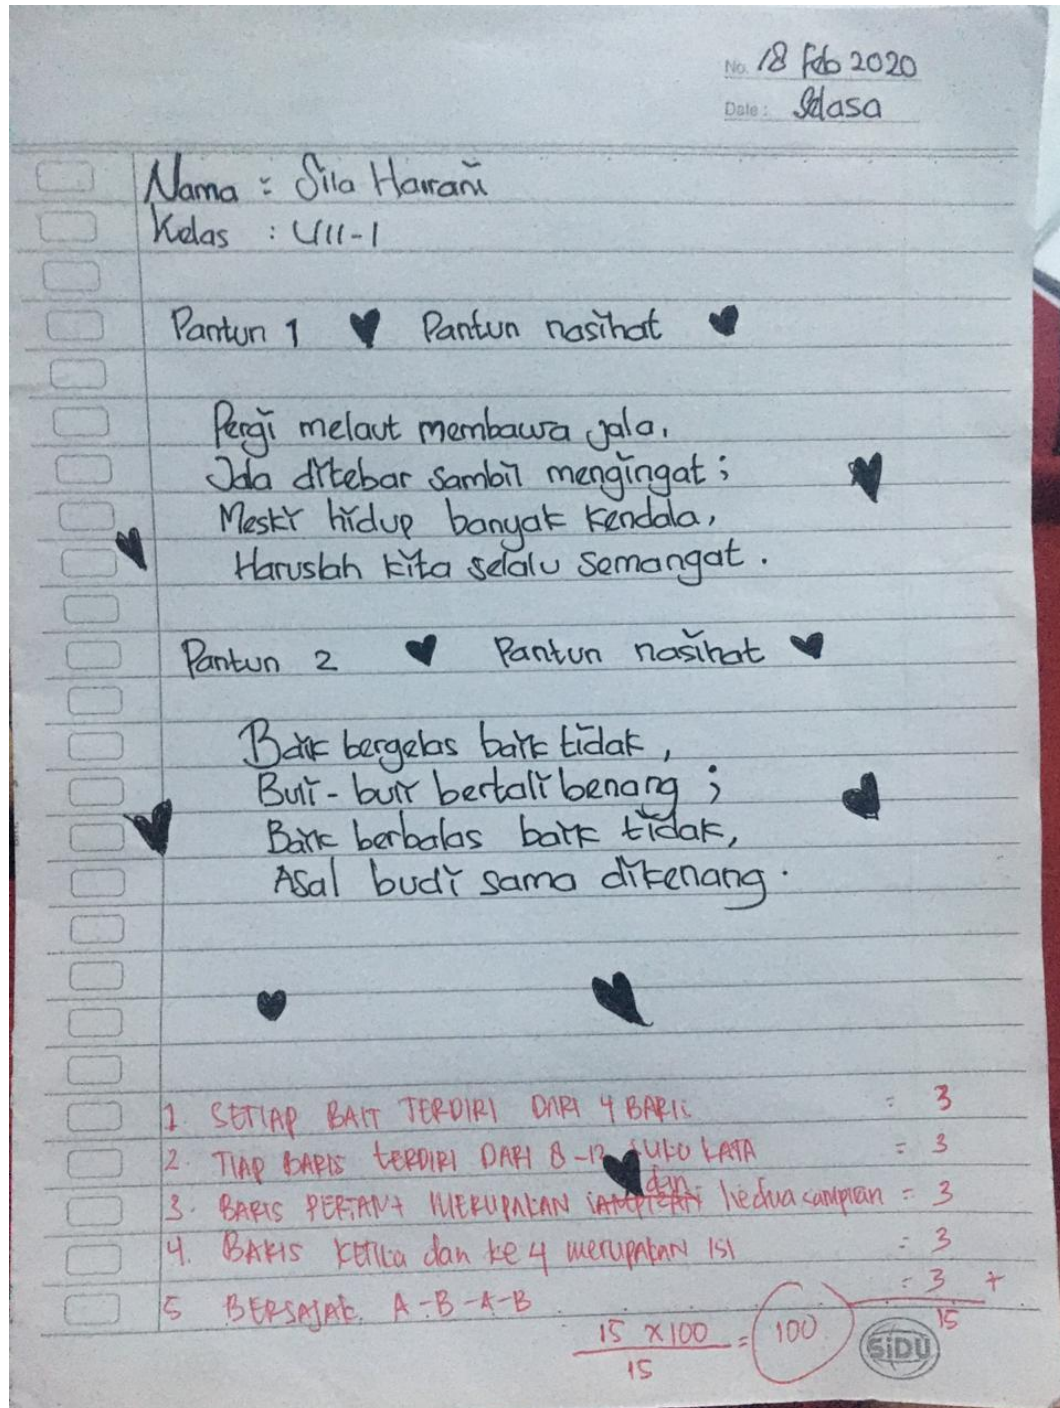 No. 18 Feb 2020
Date: Selasa
Nama : Sila Hairani
Kelas : VII-1
Pantun 1 Pantun nasihat
Pergi melaut membawa jala,
Jala ditebar sambil mengingat ;
Meski hidup banyak kendala,
Haruslah kita selalu semangat .
Pantun 2 Pantun nasihat
Baik bergelas baik tidak ,
Buli - buli bertali benang ;
Baik berbalas baik tidak,
Asal budi sama dikenang .
1. SETIAP BAIT TERDIRI DARI 4 BARIS = 3
2. TIAP BARIS TERDIRI DARI 8 -12 SUKU KATA = 3
3. BARIS PERTAMA MERUPAKAN dan kedua sampiran = 3
4. BARIS KETIGA dan ke 4 merupakan ISI = 3
5 BERSAJAK A-B-A-B = 3 +
15
15 x100 = 100
15
SiDU